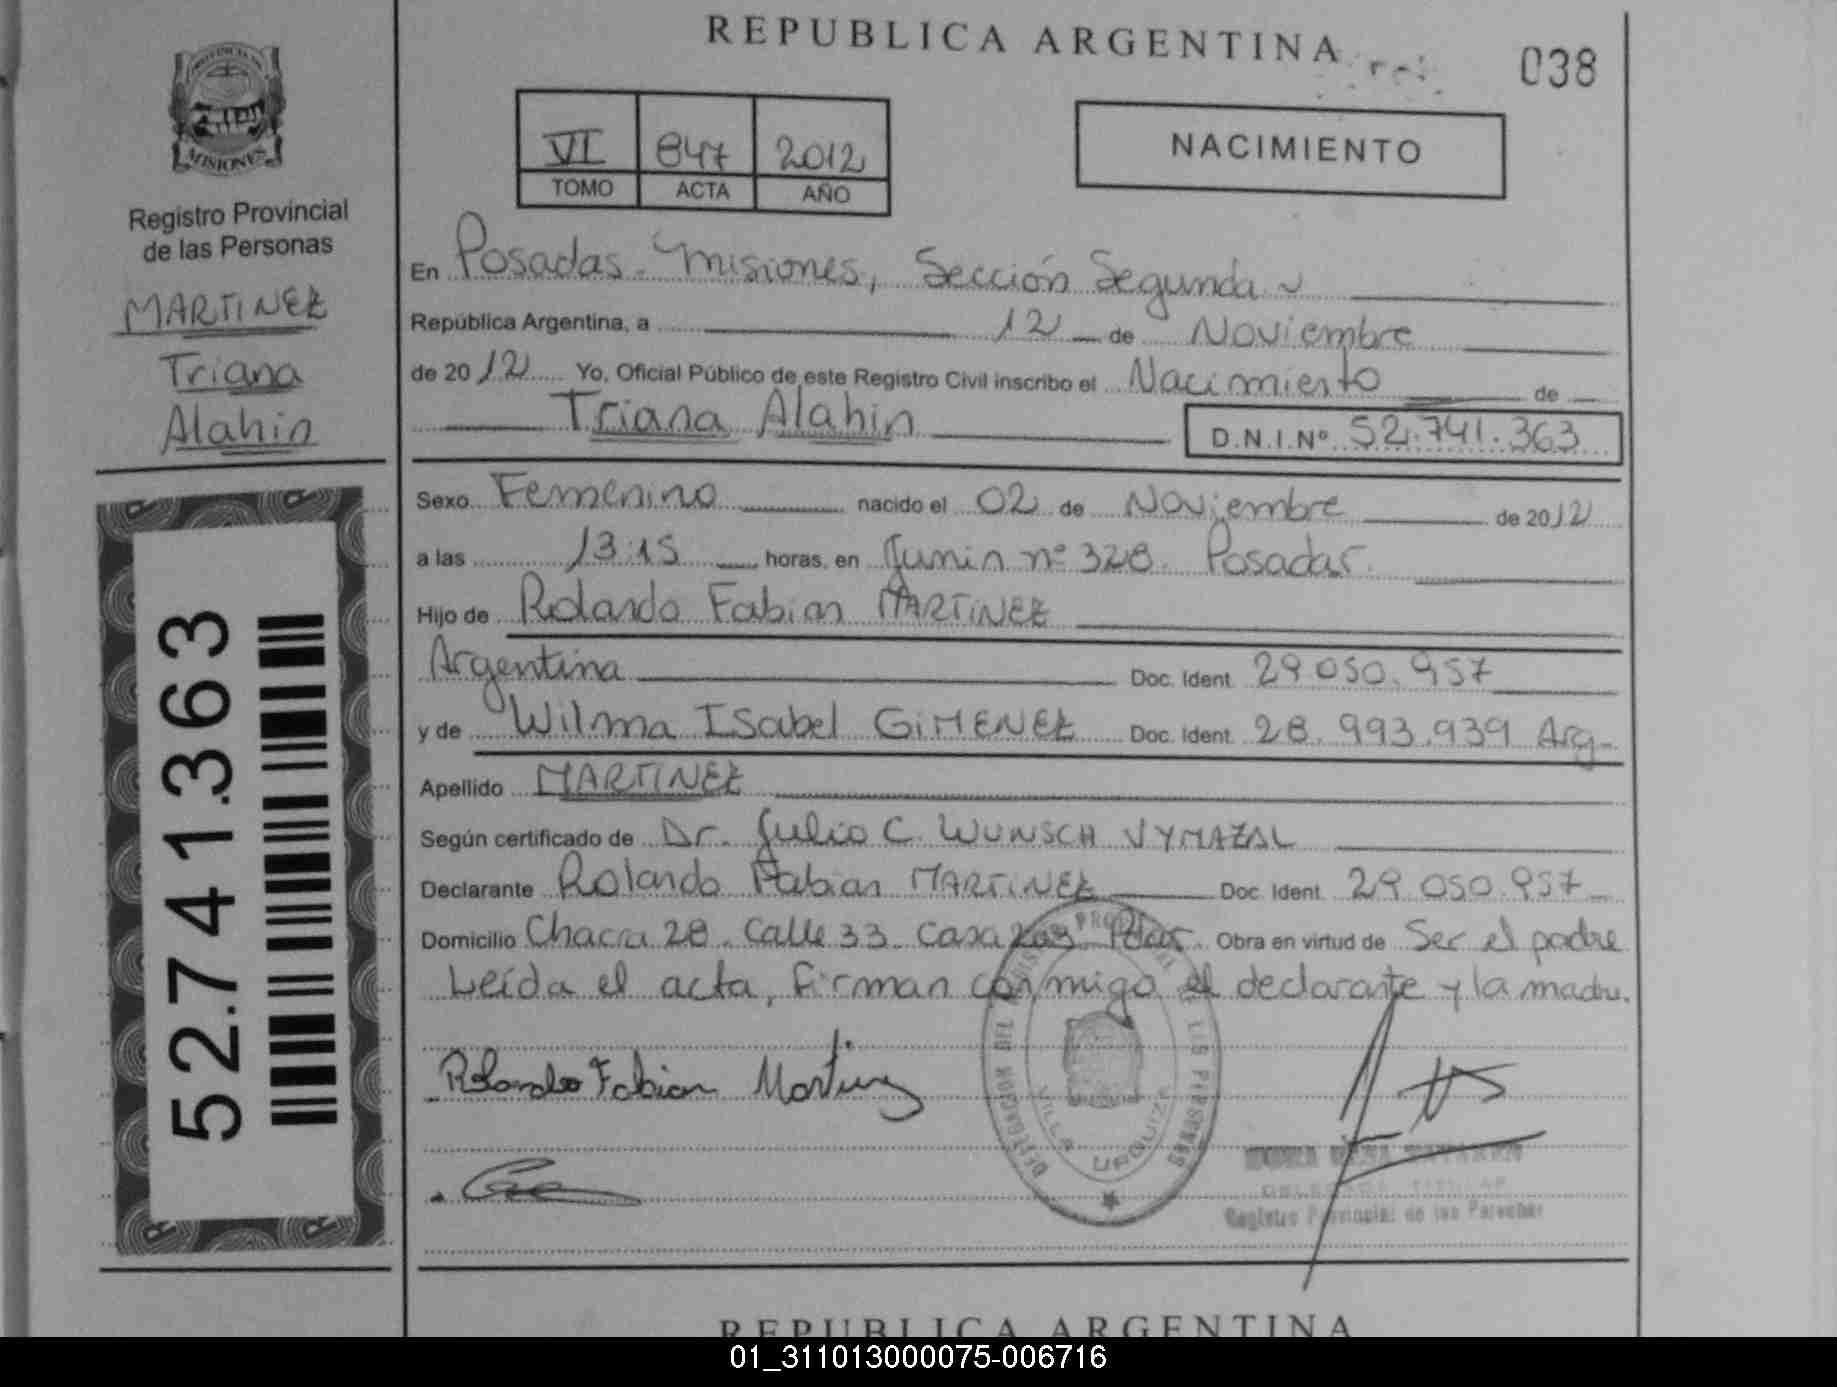 REPUBLICA ARGENTINA
038
PROVINCIA DE
MISIONES
Registro Provincial
de las Personas
MARTINEZ
Triana
Alahin
52.741.363
VI 847 2012
TOMO ACTA AÑO
NACIMIENTO
En Posadas - Misiones, Sección Segunda
República Argentina, a 12 de Noviembre
de 2012 Yo, Oficial Público de este Registro Civil inscribo el Nacimiento de
Triana Alahin D.N.I.Nº 52.741.363
Sexo Femenino nacido el 02 de Noviembre de 2012
a las 13:15 horas, en Junin nº 328. Posadas.
Hijo de Rolando Fabian MARTINEZ
Argentina Doc. Ident. 29.050.957
y de Wilma Isabel GIMENEZ Doc. Ident. 28.993.939 Arg.
Apellido MARTINEZ
Según certificado de Dr. Julio C. WUNSCH VYMAZAL
Declarante Rolando Fabian MARTINEZ Doc. Ident. 29.050.957
Domicilio Chacra 28. Calle 33. Casa Obra en virtud de Ser el padre
Leída el acta, firman conmigo el declarante y la madre.
Rolando Fabian Martinez
VILLA URQUIZA
Registro Provincial de las Personas
REPUBLICA ARGENTINA
01_311013000075-006716